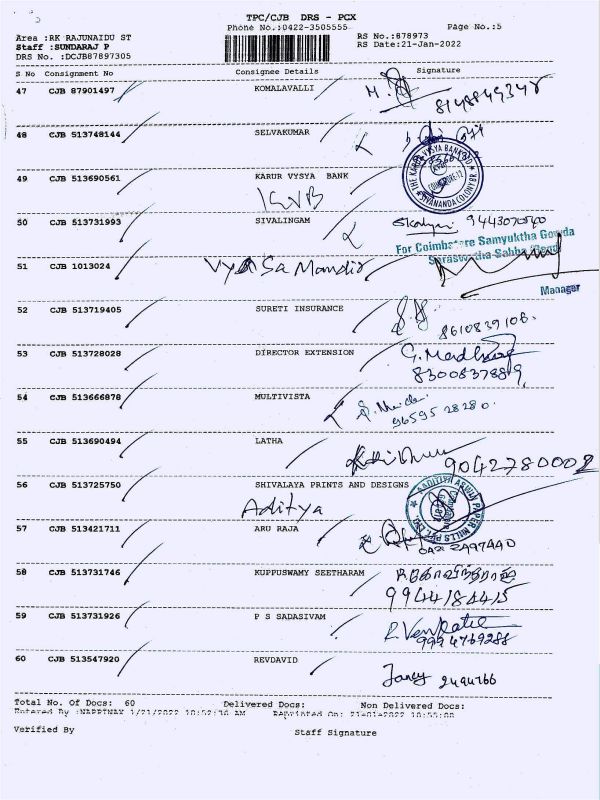 TPC/CJB DRS - PCX
Phone No.:0422-3505555 Page No.:5
Area :RK RAJUNAIDU ST RS No.:878973
Staff :SUNDARAJ P RS Date:21-Jan-2022
DRS No. :DCJB87897305
S No Consignment No Consignee Details Signature
47 CJB 87901497 KOMALAVALLI
8148849348
48 CJB 513748144 SELVAKUMAR
49 CJB 513690561 KARUR VYSYA BANK
KVB
THE KARUR VYSYA BANK
SIVANANDA COLONY BR.
50 CJB 513731993 SIVALINGAM 9443070540
For Coimbatore Samyuktha Gowda
Saraswatha Sabha
51 CJB 1013024 Vyasa Mandir
Manager
52 CJB 513719405 SURETI INSURANCE
8610839106.
53 CJB 513728028 DIRECTOR EXTENSION
54 CJB 513666878 MULTIVISTA
96595 28280.
55 CJB 513690494 LATHA
9042780002
56 CJB 513725750 SHIVALAYA PRINTS AND DESIGNS
Aditya
57 CJB 513421711 ARU RAJA
58 CJB 513731746 KUPPUSWAMY SEETHARAM
9944184415
59 CJB 513731926 P S SADASIVAM R. Venkatel
9994769288
60 CJB 513547920 REVDAVID
Janey 2494766
Total No. Of Docs: 60 Delivered Docs: Non Delivered Docs:
Entered By :NAPPINAY 1/21/2022 10:52:38 AM Reprinted On: 21-01-2022 10:55:08
Verified By Staff Signature